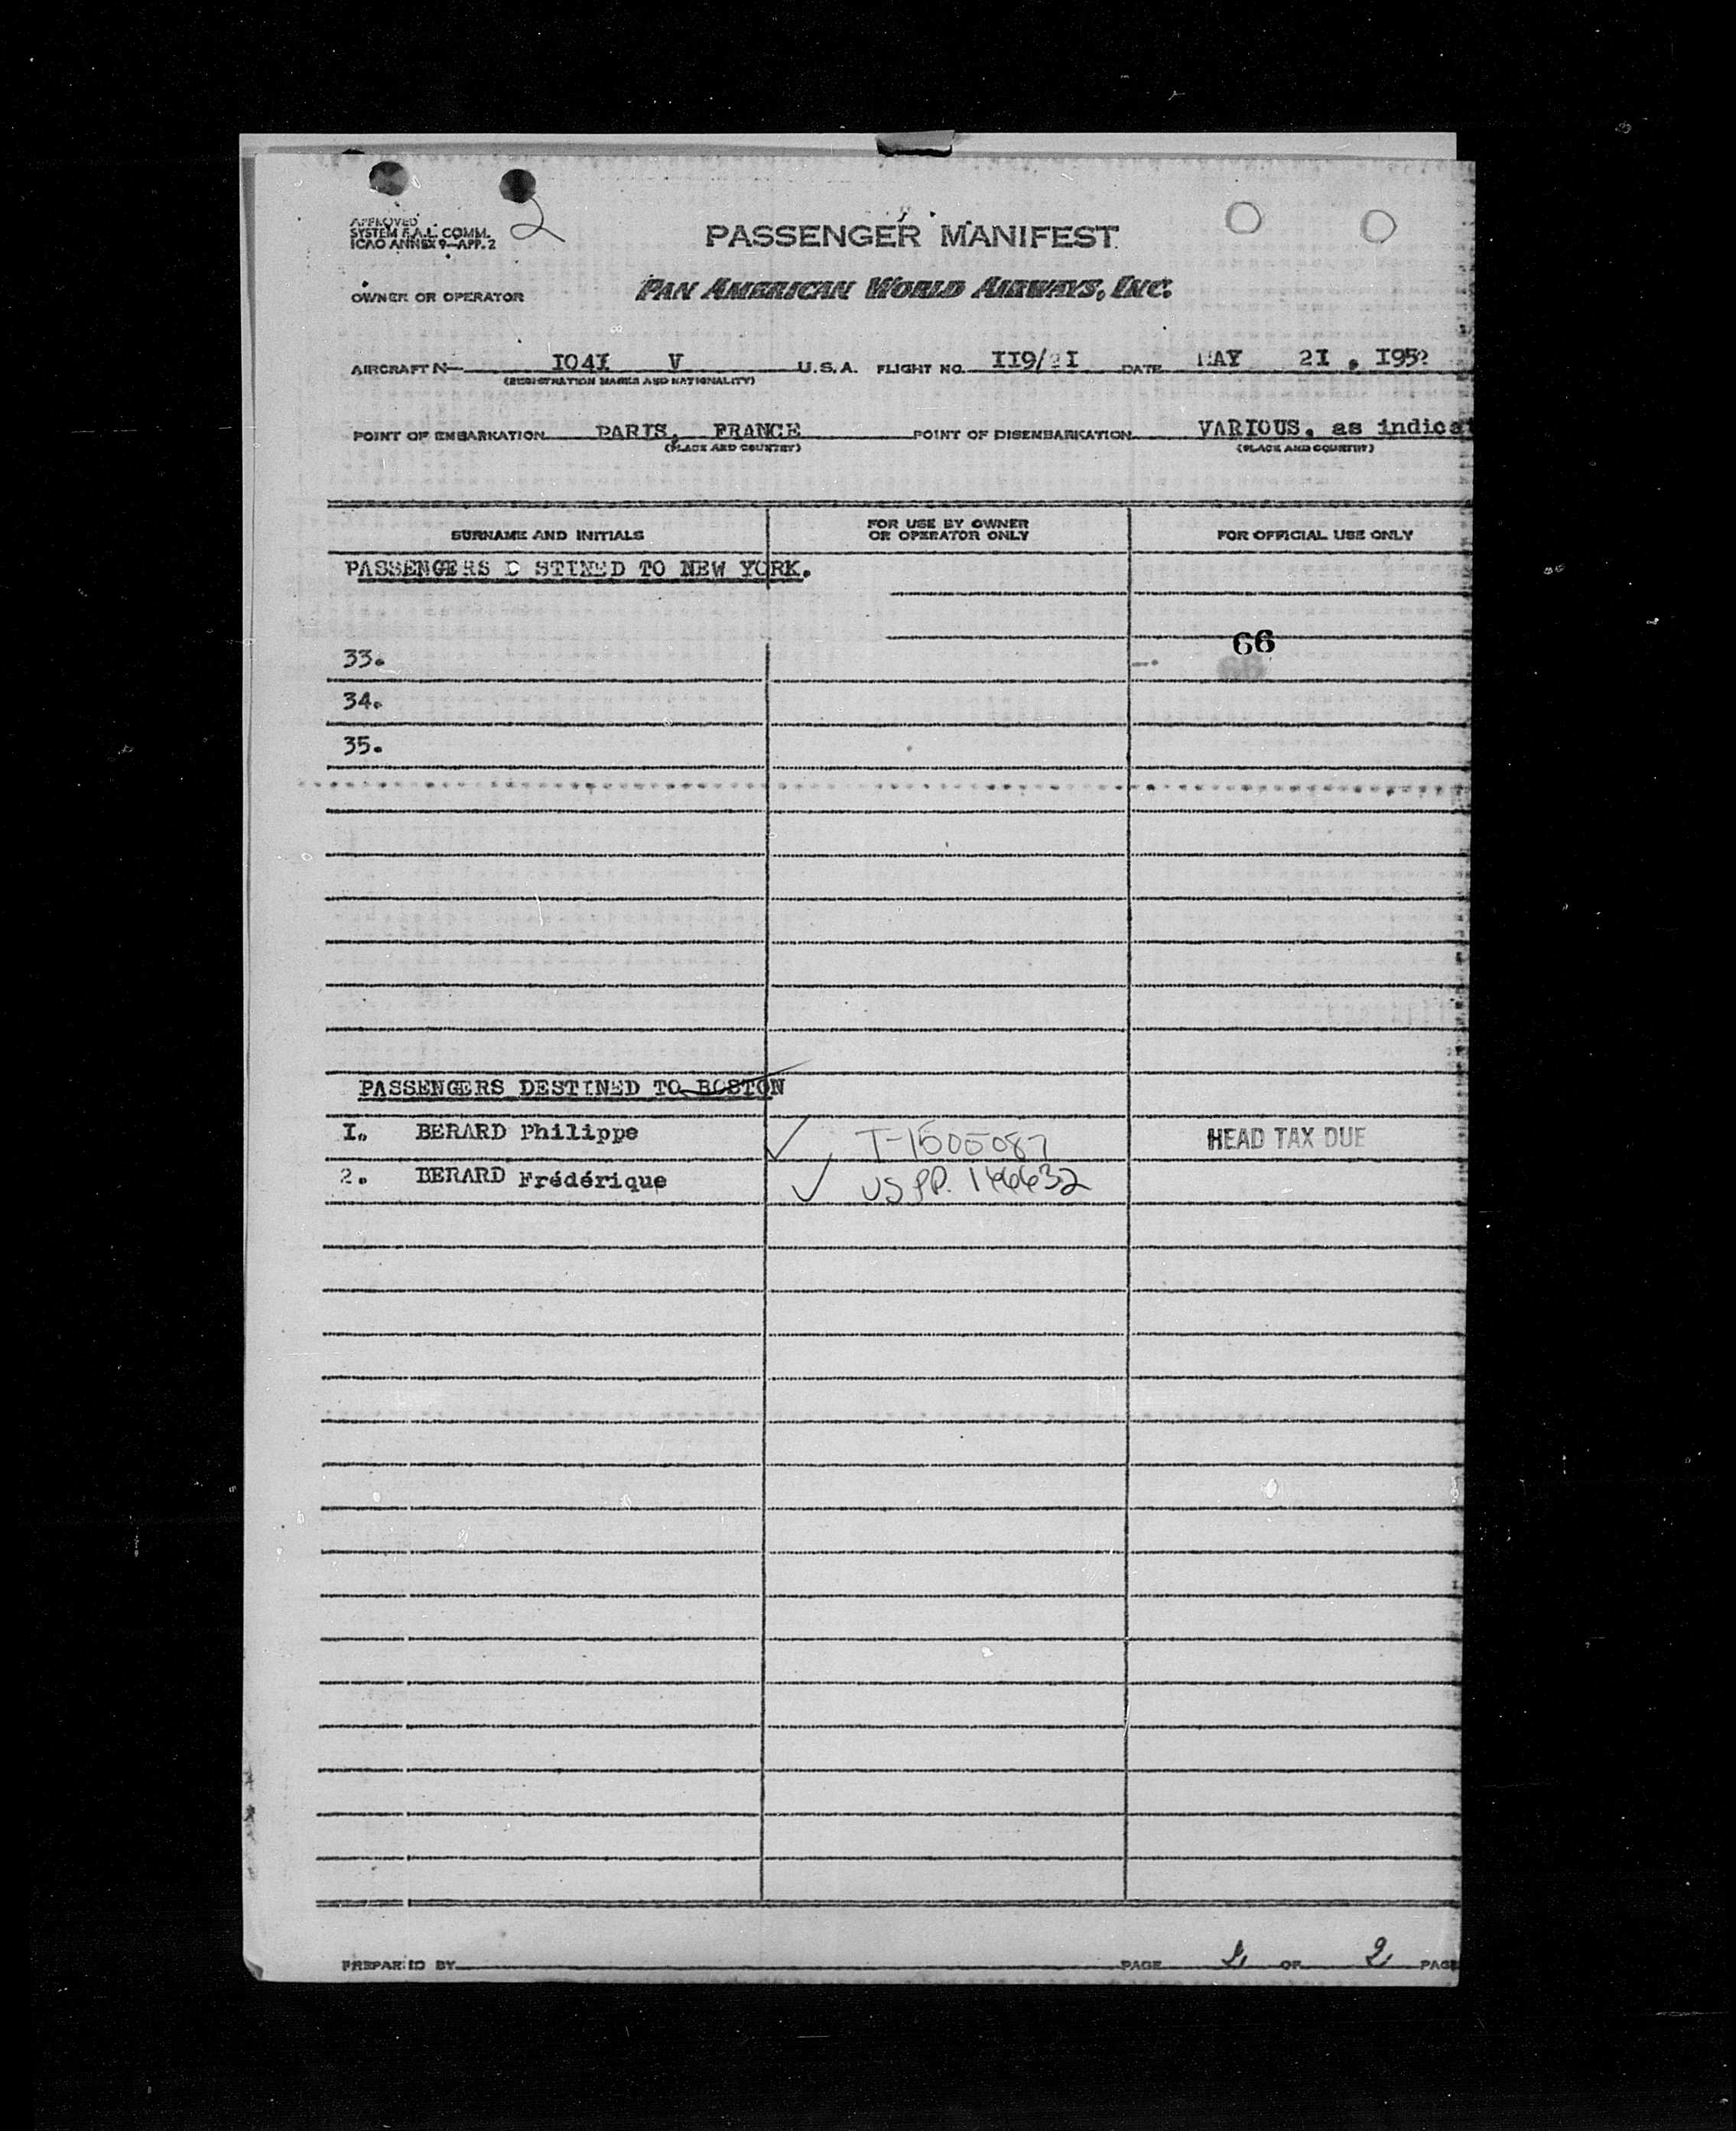 APPROVED
SYSTEM F.A.L. COMM.
ICAO ANNEX 9-APP. 2
2
PASSENGER MANIFEST
OWNER OR OPERATOR PAN AMERICAN WORLD AIRWAYS, INC.
AIRCRAFT N I04I V U.S.A. FLIGHT NO. II9/2I DATE MAY 2I . I952
(REGISTRATION MARKS AND NATIONALITY)
POINT OF EMBARKATION PARIS, FRANCE POINT OF DISEMBARKATION VARIOUS, as indica
(PLACE AND COUNTRY) (PLACE AND COUNTRY)
SURNAME AND INITIALS FOR USE BY OWNER OR OPERATOR ONLY FOR OFFICIAL USE ONLY
PASSENGERS D STINED TO NEW YORK.
66
33.
66
34.
35.
PASSENGERS DESTINED TO BOSTON
I. BERARD Philippe T-1505087 HEAD TAX DUE
2. BERARD Frédérique US PP. 
PREPARED BY PAGE 2 OF 2 PAGE